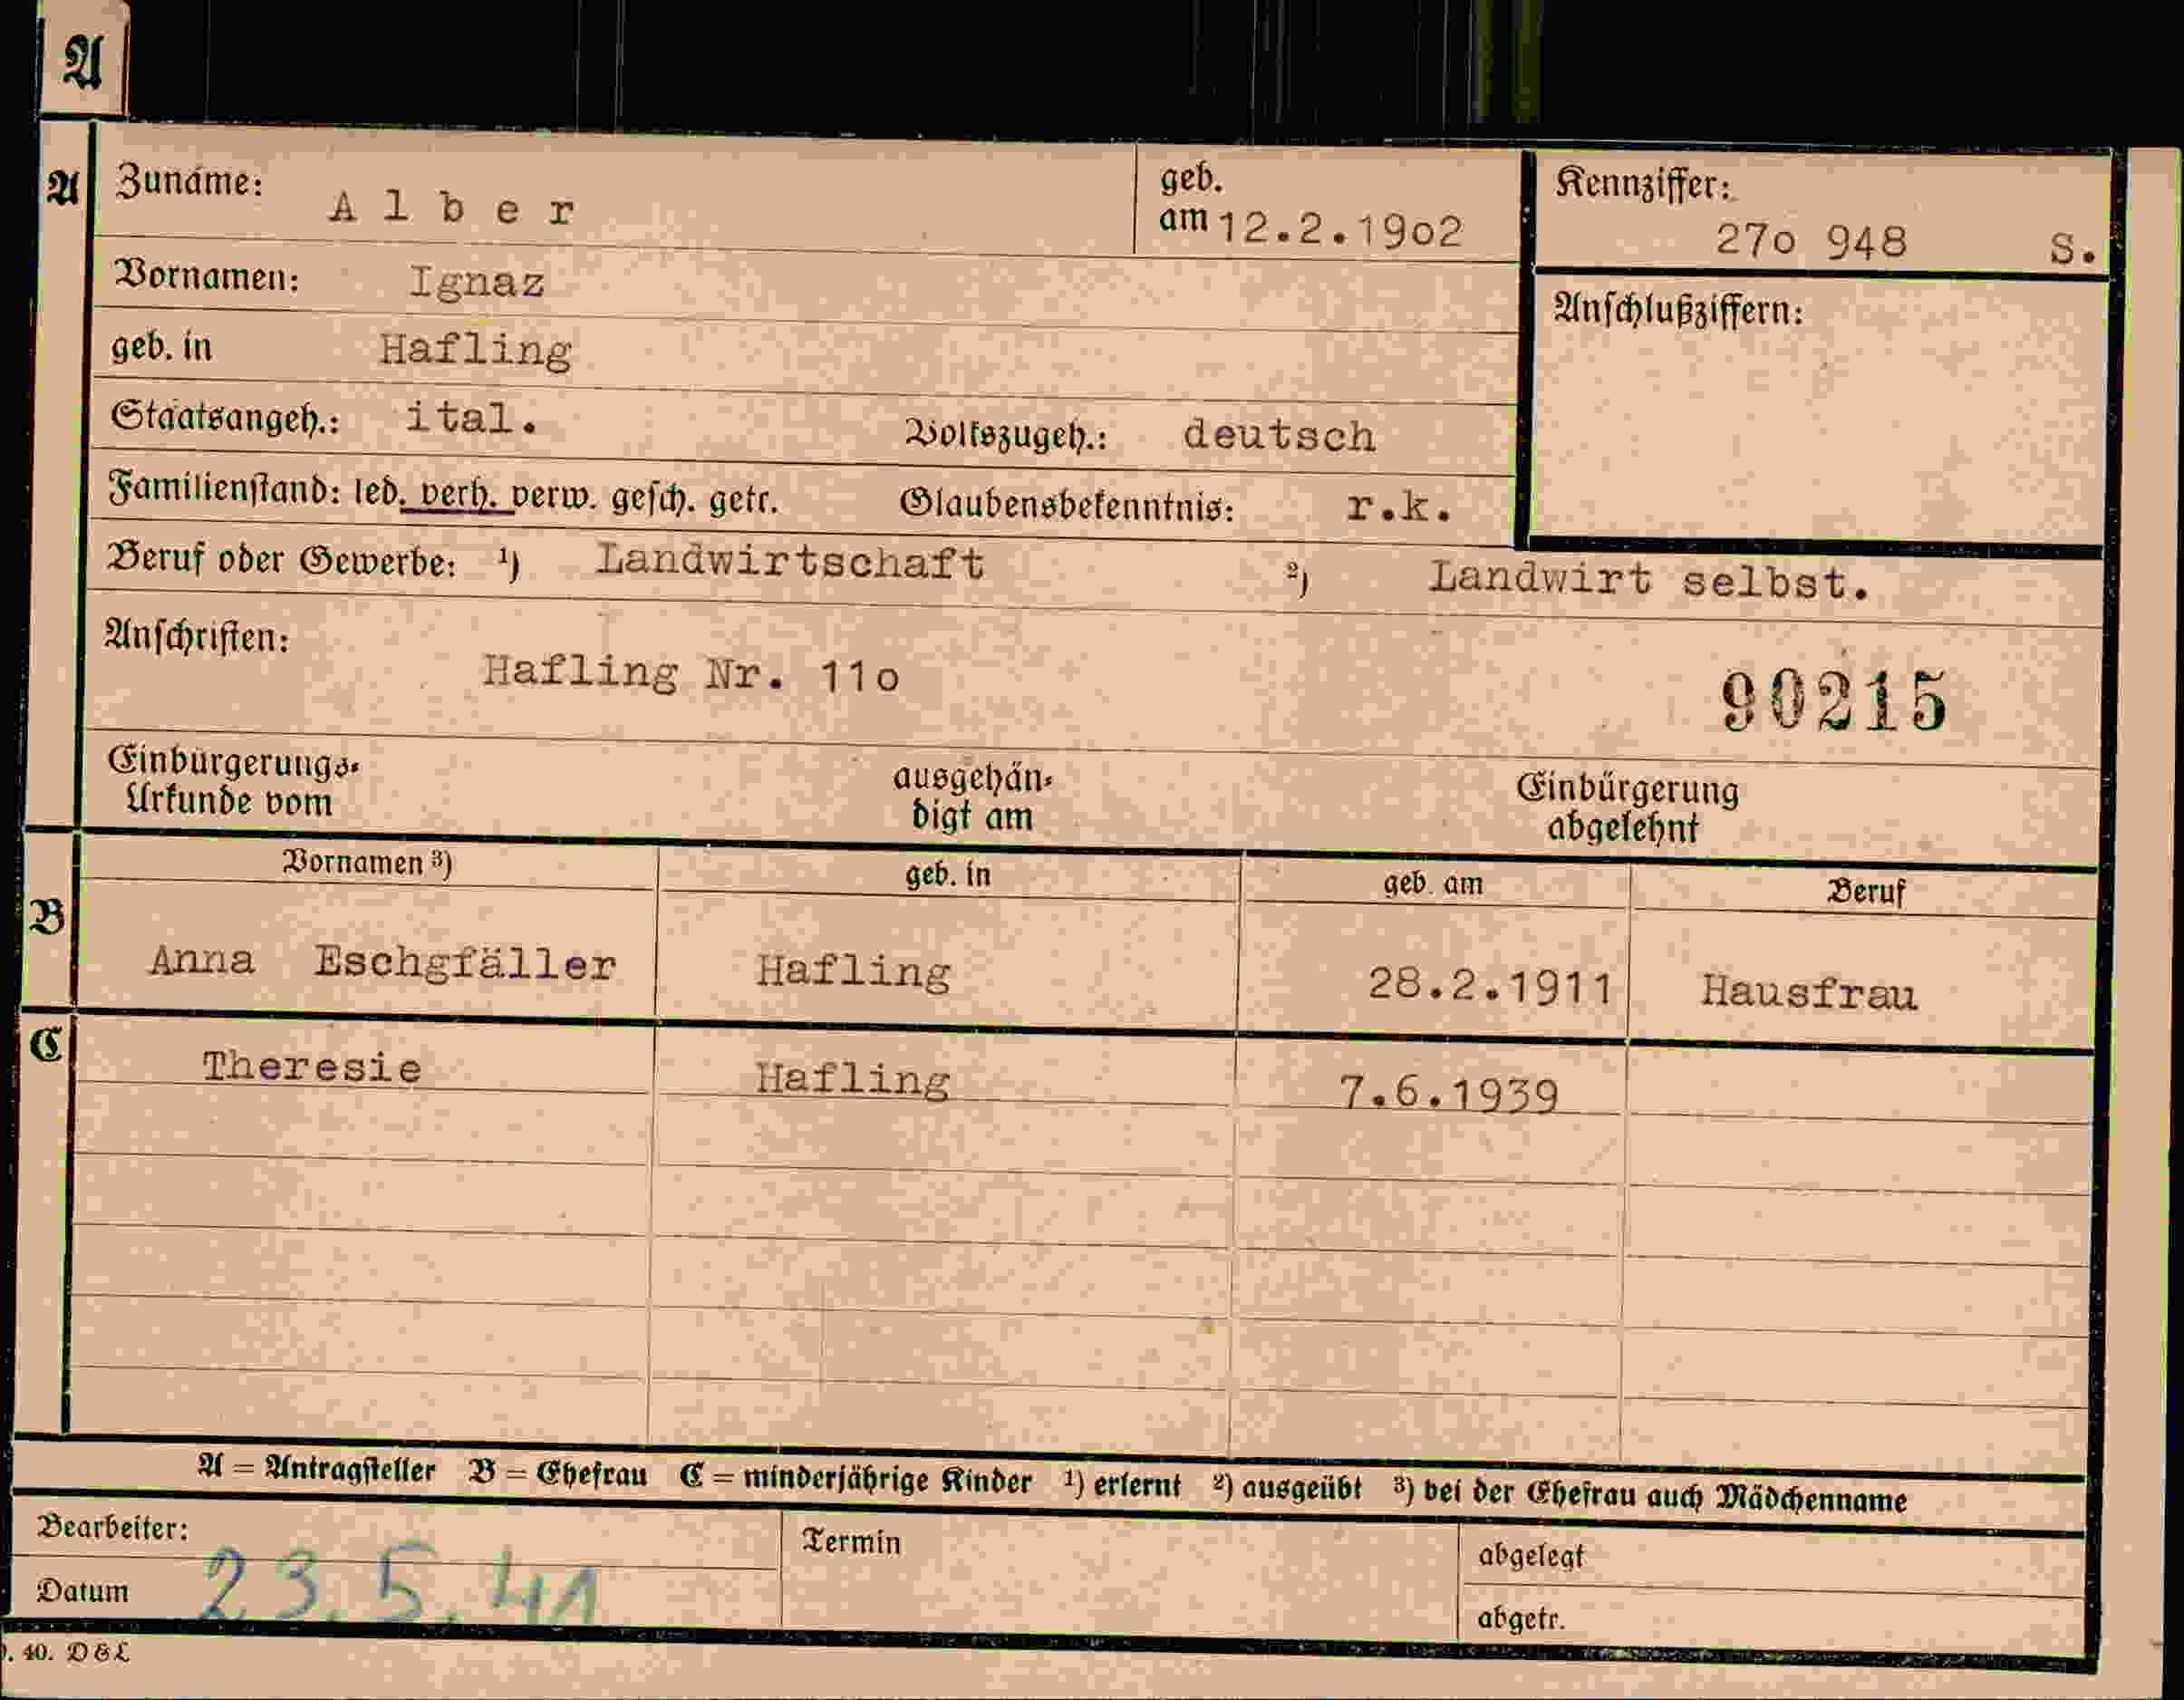 A
A Zuname: Alber geb. am 12.2.19o2 Kennziffer: 27o 948 S.
Vornamen: Ignaz
Anschlußziffern:
geb. in Hafling
Staatsangeh.: ital. Volkszugeh.: deutsch
Familienstand: led. verh. verw. gesch. getr. Glaubensbekenntnis: r.k.
Beruf oder Gewerbe: ¹) Landwirtschaft ²) Landwirt selbst.
Anschriften:
Hafling Nr. 11o
90215
Einbürgerungs-Urkunde vom ausgehändigt am Einbürgerung abgelehnt
Vornamen ³) geb. in geb. am Beruf
B Anna Eschgfäller Hafling 28.2.1911 Hausfrau
C Theresie Hafling 7.6.1939
A = Antragsteller B = Ehefrau C = minderjährige Kinder ¹) erlernt ²) ausgeübt ³) bei der Ehefrau auch Mädchenname
Bearbeiter: Termin abgelegt
Datum 23.5.41 abgetr.
40. D & L